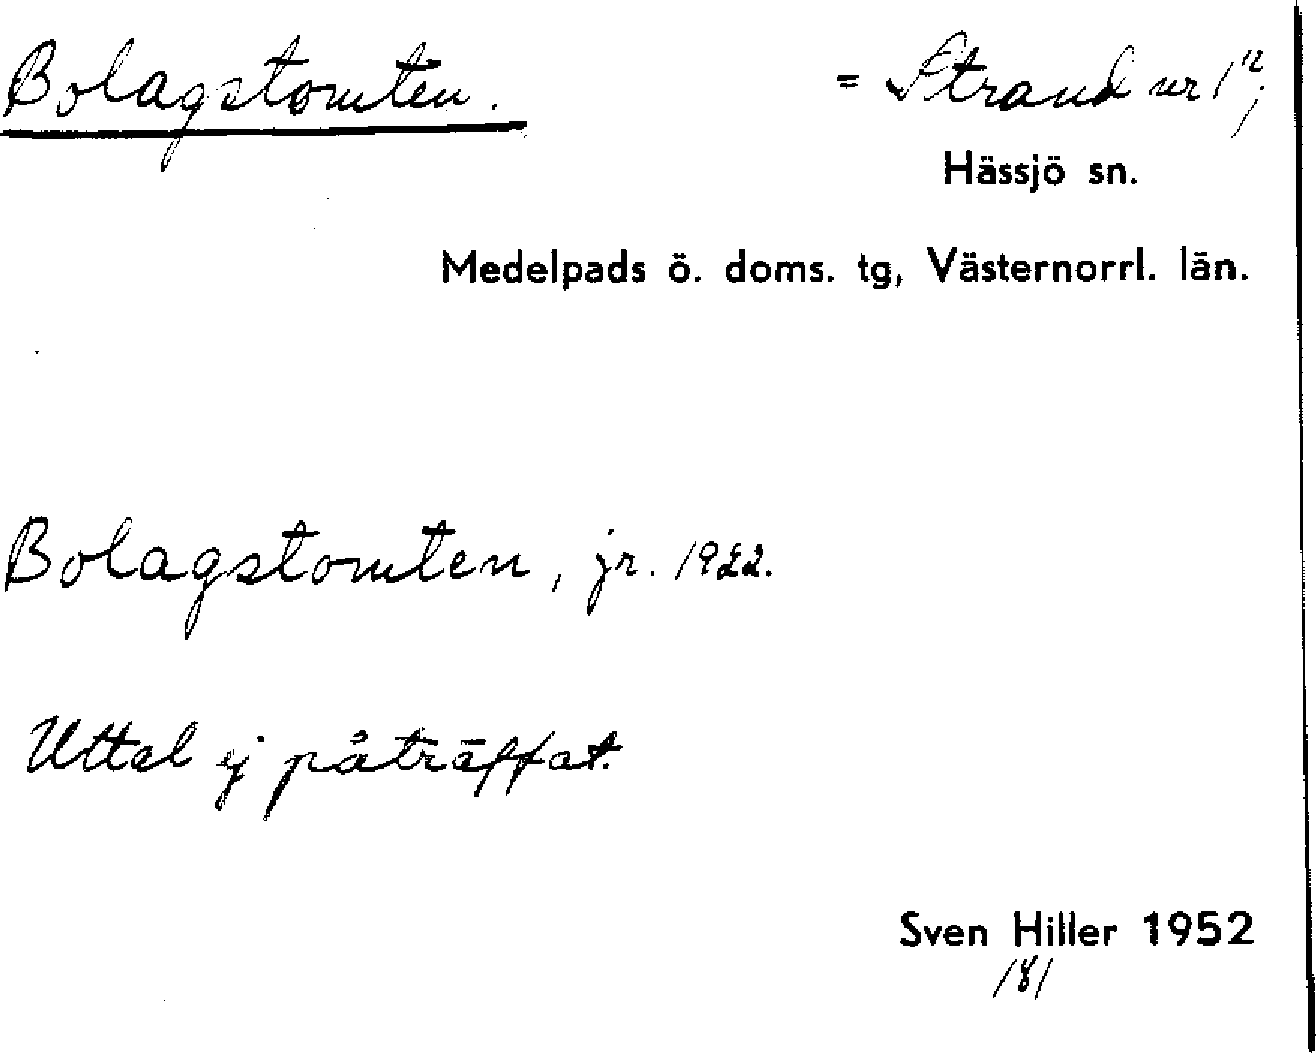 Bolagstomten. = Strand nr 1¹²,
Hässjö sn.
Medelpads ö. doms. tg, Västernorrl. län.
Bolagstomten, jr. 1922.
Uttal ej påträffat.
Sven Hiller 1952
181